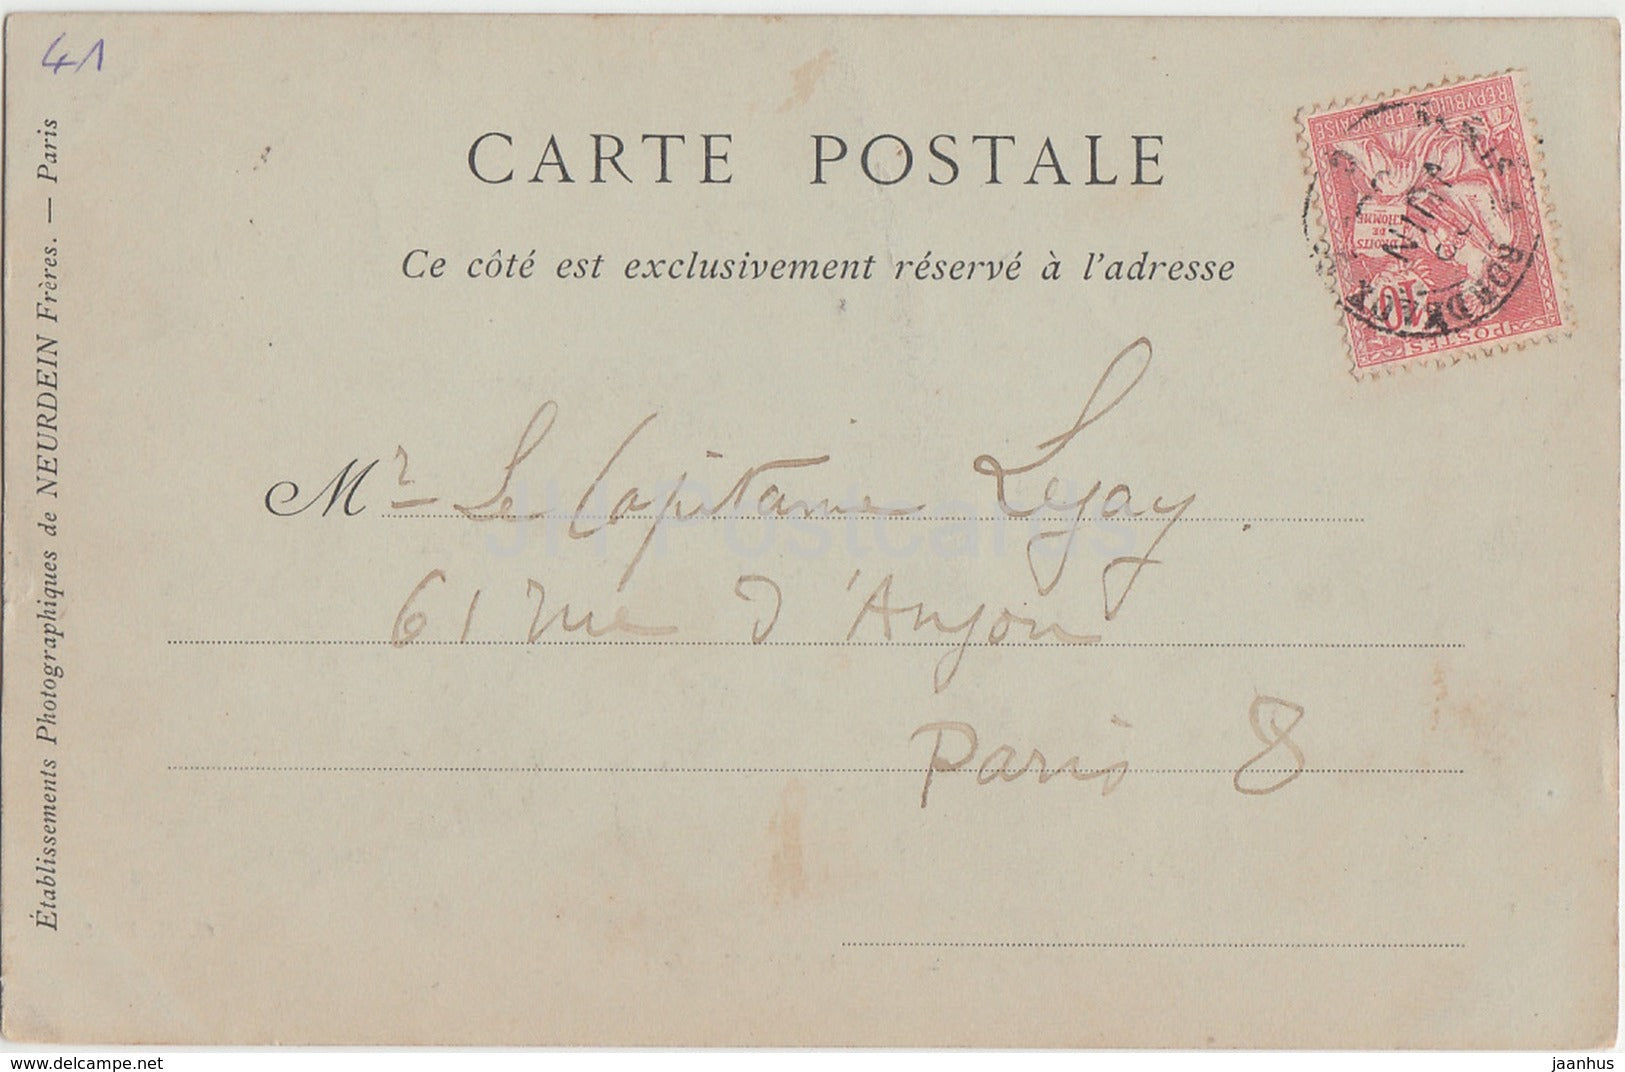 41
CARTE POSTALE
Ce côté est exclusivement réservé à l'adresse
Établissements Photographiques de NEURDEIN Frères. — Paris
REPVBLIQVE FRANÇAISE
DROITS
DE
L'HOMME
10
POSTES
BORDEAUX
JUIN
Mr Le Capitaine Lejay.
61 rue d'Anjou
Paris 8
JH Postcards
www.delcampe.net
jaanhus